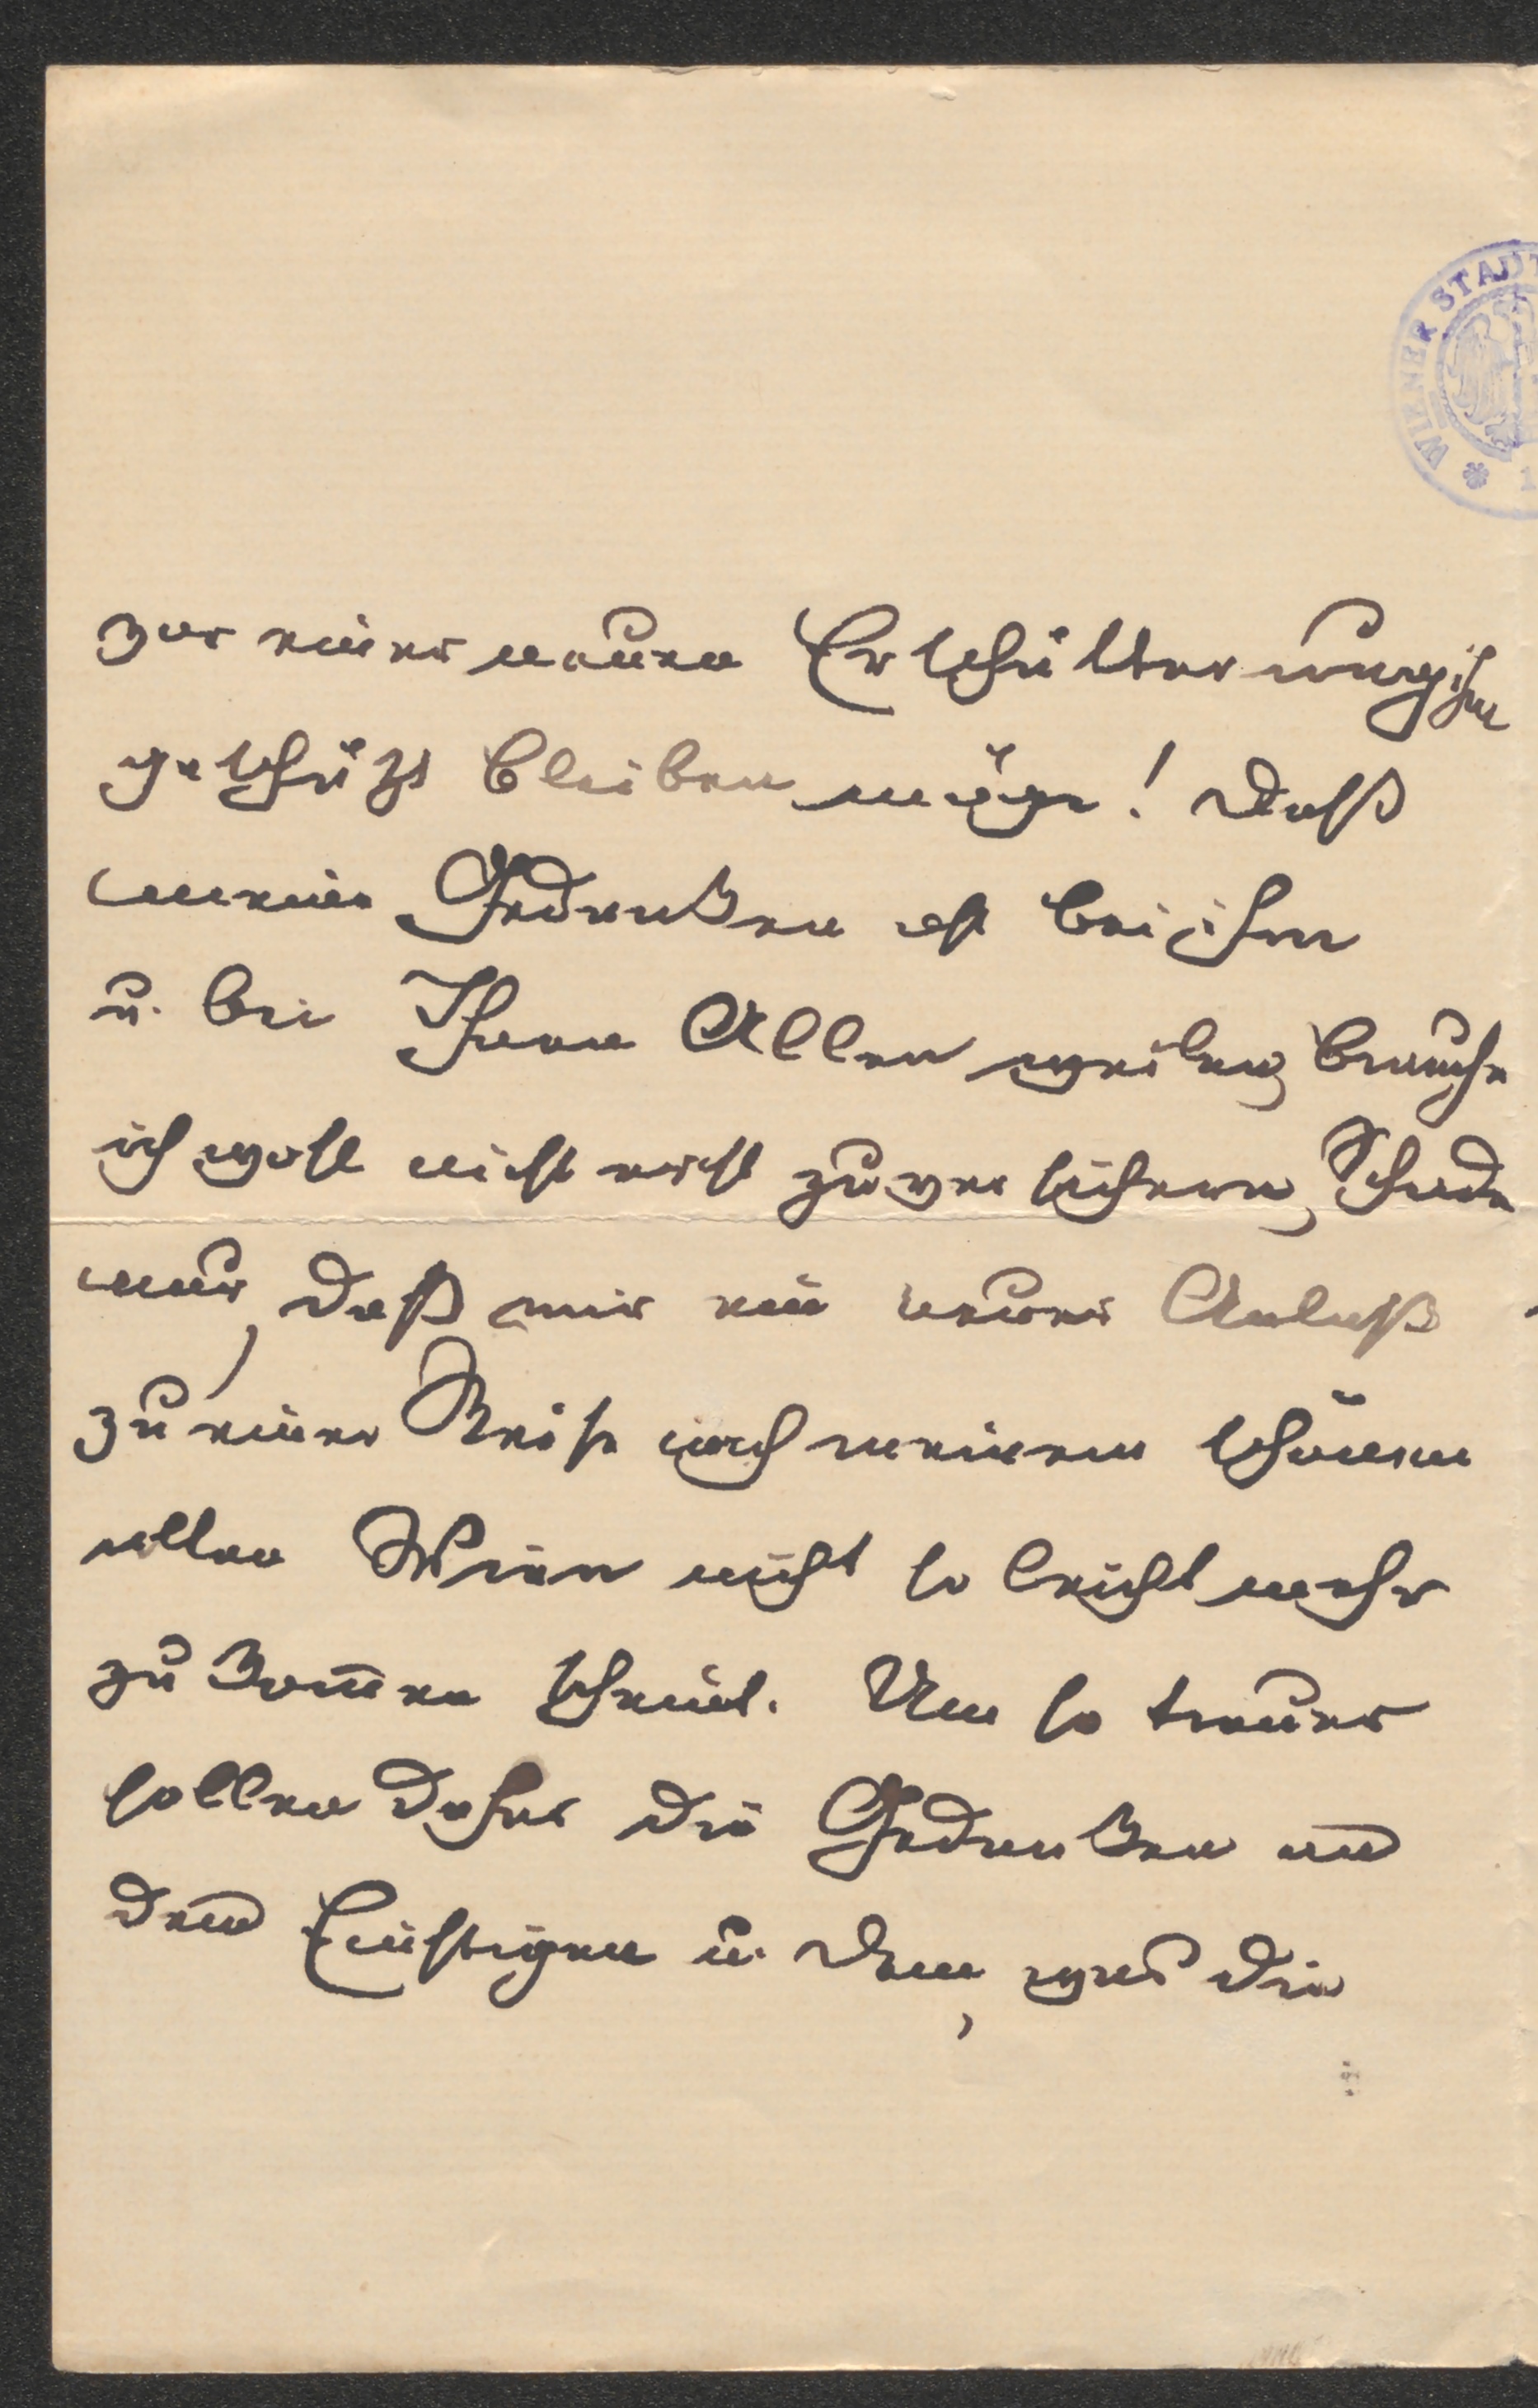 WIENER STADT
vor einer neuen Erschütterung ihm
geschützt bleiben möge! Daß
meine Gedanken oft bei ihm
u. bei Ihnen Allen weilen, brauche
ich wohl nicht erst zu versichern, Schade
nur, daß mir ein neuer Anlaß
zu einer Reise nach meinem schönen
alten Wien nicht so leicht mehr
zu kom̄en scheint. Um so treuer
sollen daher die Gedanken an
den Einstigen u. dem, was die